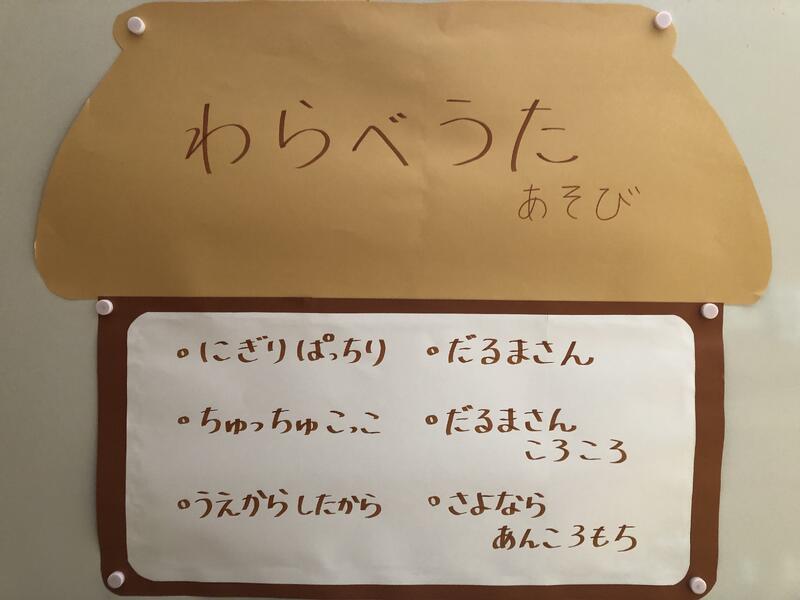 わらべうた
あそび
• にぎりぱっちり
• ちゅっちゅこっこ
• うえからしたから
• だるまさん
• だるまさん
ころころ
• さよなら
あんころもち